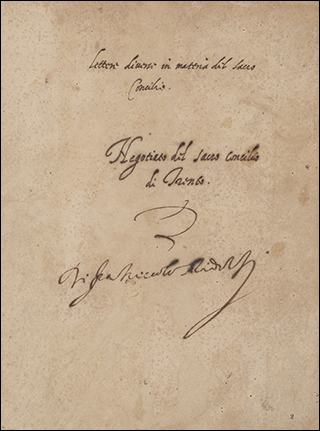 Lettere diverse in materia del sacro
Concilio.
Negotiato del sacro concilio
di Trento.
Di fra Niccolò Ridolfi
2